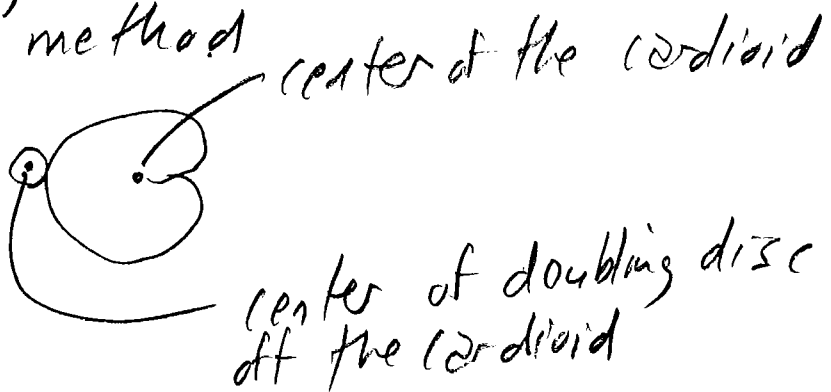 method
center of the cardioid
center of doubling disc
off the cardioid